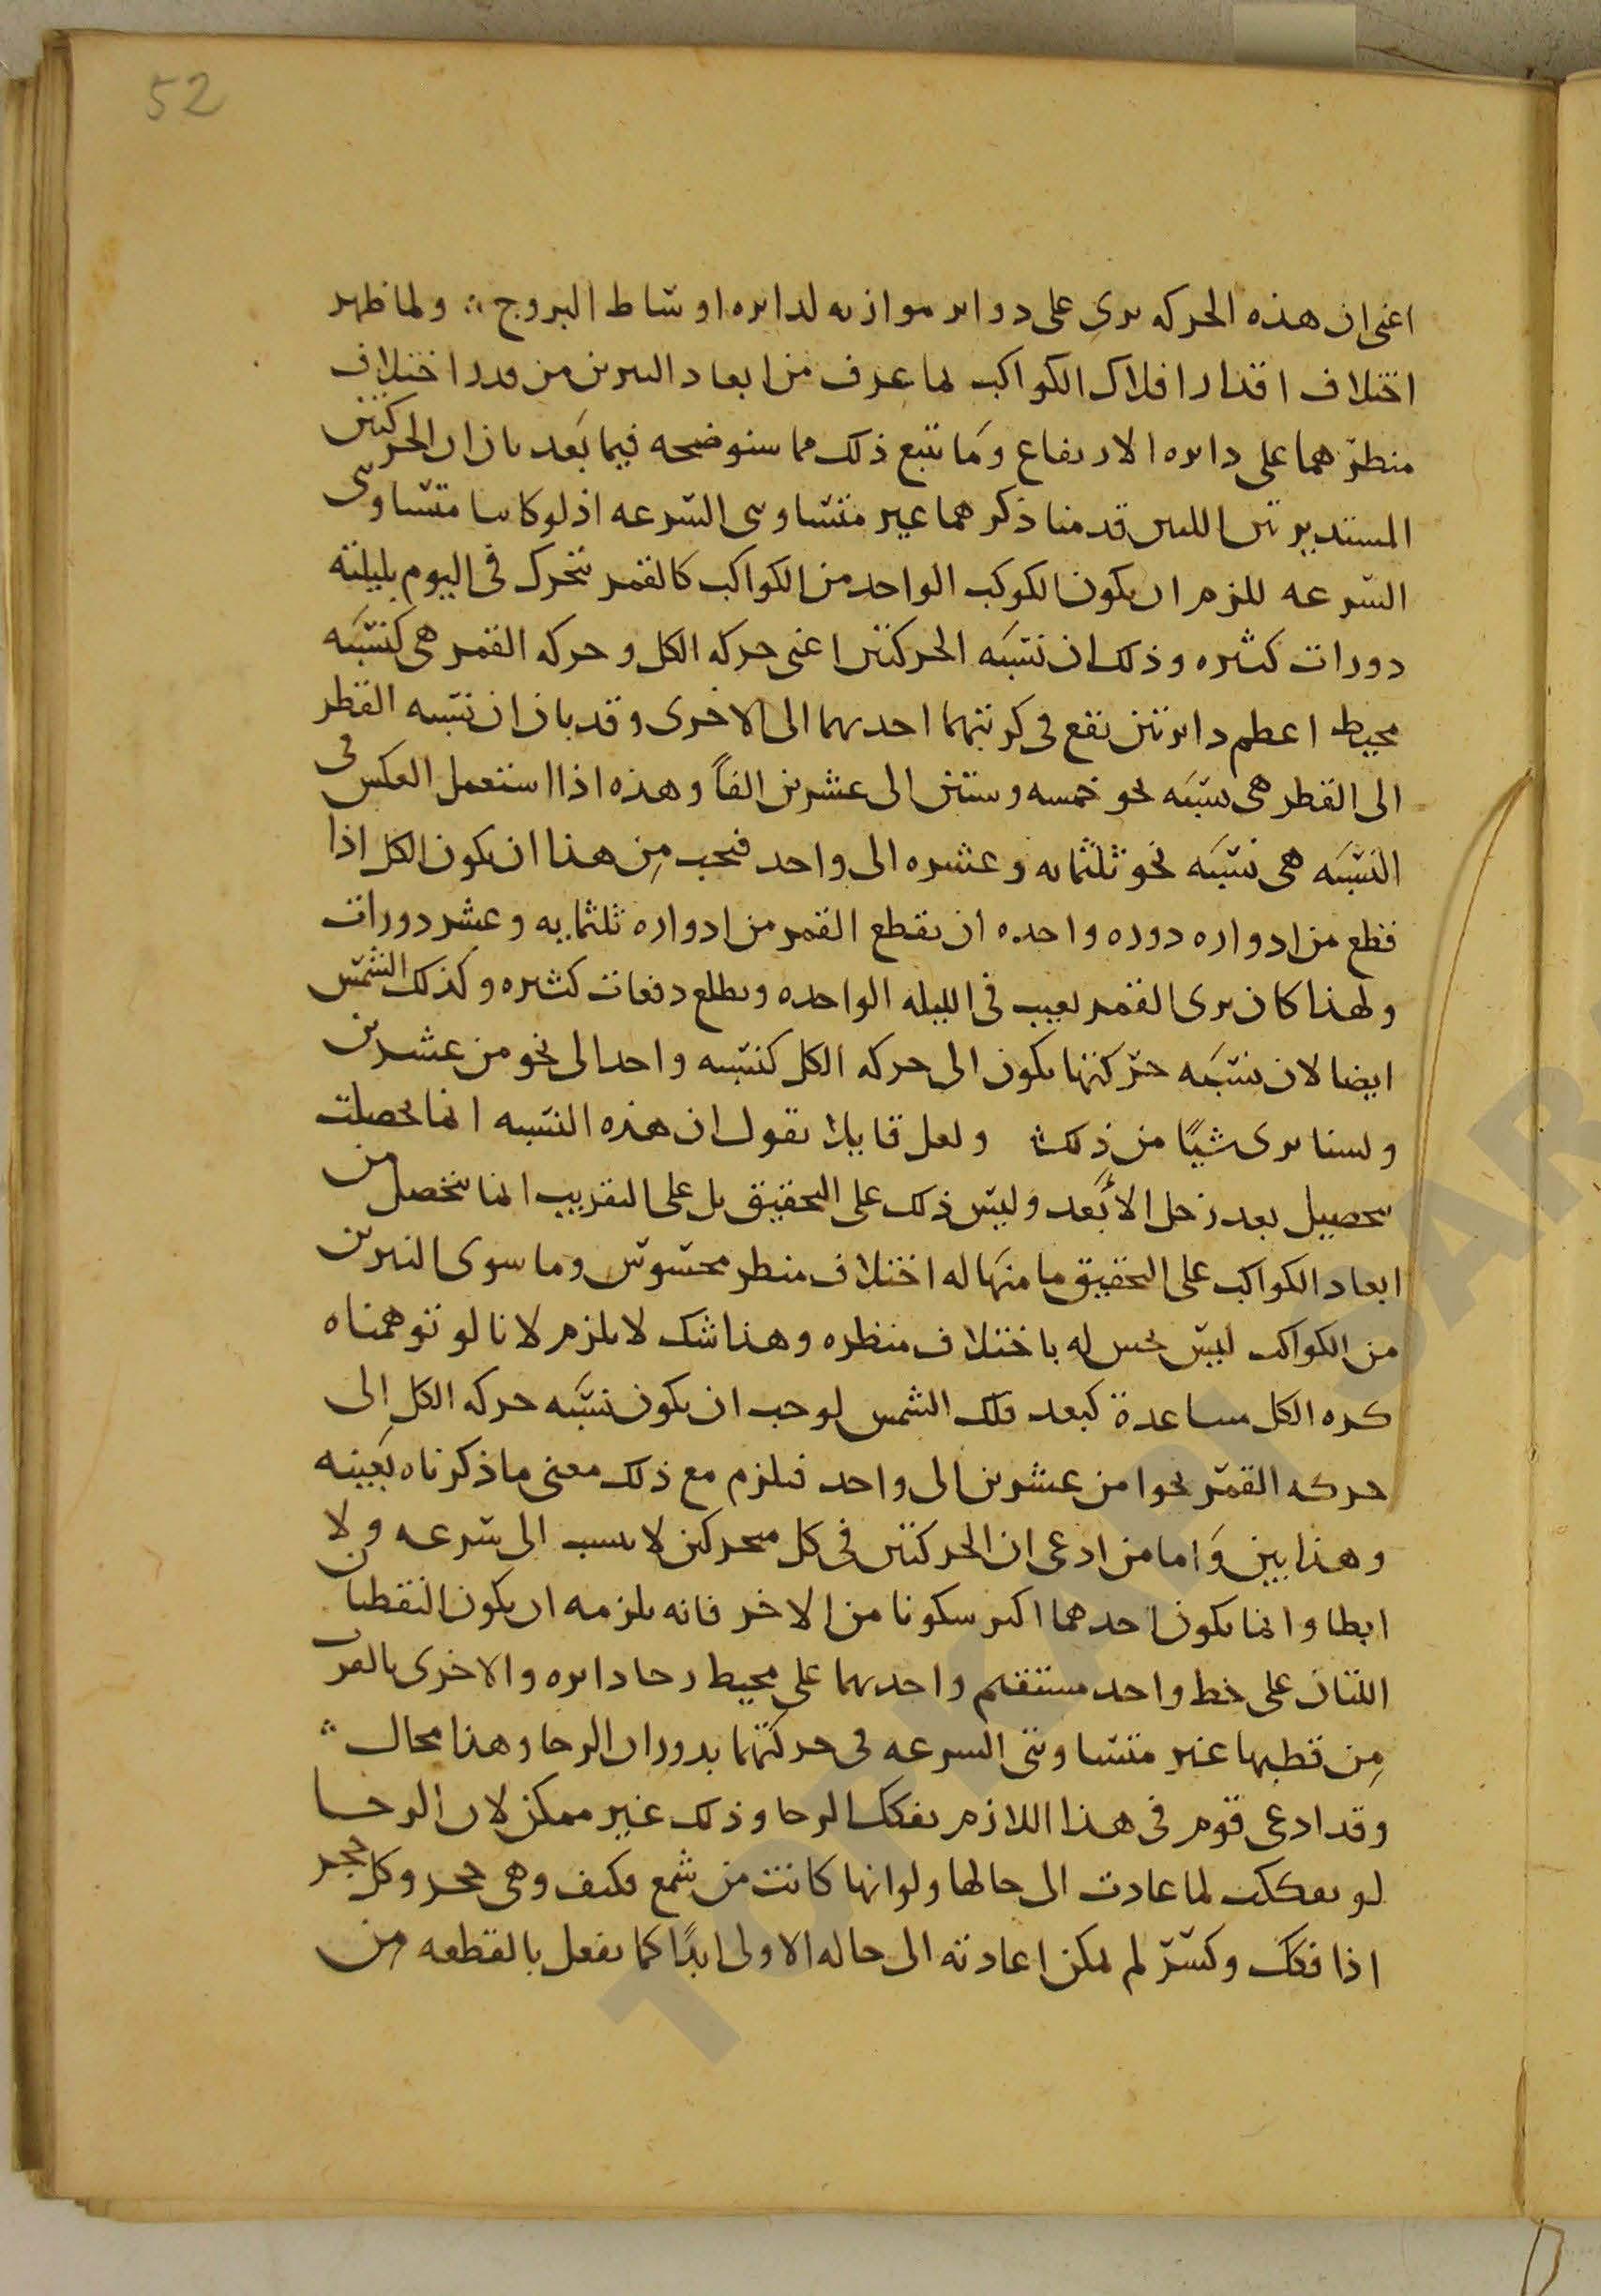 52
اعنى ان هذه الحركه ىرى على دواىر موازىه لداىره اوساط البروج ؞ ولما ظهر
اختلاف اقدار افلاك الكواكب لما عرف من ابعاد النيرين من قدر اختلاف
منظرهما على داىره الارتفاع وما يتبع ذلك مما سنوضحه فيما بعد بان ان الحركتين
المستديرتين اللتين قدمنا ذكرهما غير متساوىى السرعه اذ لو كانتا متساوىى
السرعه للزم ان يكون الكوكب الواحد من الكواكب كالقمر يتحرك فى اليوم بليلته
دورات كثيره وذلك ان نسبه الحركتين اعنى حركه الكل وحركه القمر هى كنسبه
محيط اعظم داىرتين تقع فى كرتيهما احديهما الى الاخرى وقد بان ان نسبه القطر
الى القطر هى نسبه نحو خمسه وستين الى عشرين الفاً وهذه اذا استعمل العكس فى
النسبه هى نسبه نحو ثلثماىه وعشره الى واحد فيجب من هذا ان يكون الكل اذا
قطع من ادواره دوره واحده ان يقطع القمر من ادواره ثلثمايه وعشر دورات
ولهذا كان يرى القمر يغيب فى الليله الواحده ويطلع دفعات كثيره وكذلك الشمس
ايضا لان نسبه حركتها يكون الى حركه الكل كنسبه واحد الى نحو من عشرين
ولسنا نرى شيًا من ذلك ولعل قايلا يقول ان هذه النسبه انما تحصلت
بتحصيل بعد زحل الأبعد وليس ذلك على التحقيق بل على التقريب انما يتحصل من
ابعاد الكواكب على التحقيق ما منها له اختلاف منظر محسوس وما سوى النيرين
من الكواكب ليس يحس له باختلاف منظره وهذا شك لا يلزم لانا لو توهمناه
كره الكل مساعدة كبعد فلك الشمس لوجب ان يكون نسبه حركه الكل الى
حركه القمر نحوا من عشرين الى واحد فيلزم مع ذلك معنى ما ذكرناه بعينه
وهذا بين وَاما من ادعى ان الحركتين فى كل متحركين لا ينسب الى سرعه ولا
ابطا وانما يكون احدهما اكثر سكونا من الاخر فانه يلزمه ان يكون النقطتان
اللتان على خط واحد مستقيم واحديهما على محيط رحا داىره والاخرى بالقرب
مِن قطبها غير متساويتى السرعه فى حركتهما بدوران الرحا وهذا محال ؞
وقد ادعى قوم فى هذا اللازم تفكك الرحا وذلك غير ممكن لان الرحا
لو تفككت لما عادت الى حالها ولو انها كانت من شمع فكيف وهى حجر وكل حجر
اذا فكك وكسّر لم يمكن اعادته الى حاله الاولى ابدًا كما يفعل بالقطعه من